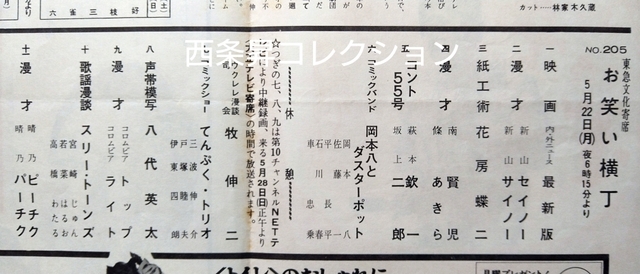 カット……林家木久蔵
六 雀 三 枝 好
NO.205
東急文化寄席
お笑い横丁
5月22日(月) 夜6時15分より
一 映画 内・外ニュース 最新版
二 漫才 新山セイノー 新山サイノー
三 紙工術 花房蝶二
四 漫才 南賢児 條あきら
五 コント55号 萩本欽一 坂上二郎
六 コミックバンド 岡本八とダスターポット
岡本八
佐藤一
平川長平
石忠春
車
休憩
☆つぎの七、八、九は第10チャンネルNETテレビにより中継録画、来る5月28日(日)正午より
テレビ寄席の時間で放送されます。
ウクレレ漫談 司会 牧伸二
七 コミックショー てんぷく・トリオ
三波伸介
戸塚睦夫
伊東四朗
八 声帯模写 八代英太
九 漫才 コロムビアライト コロムビアトップ
十 歌謡漫談 スリー・トーンズ
宮崎じゅん
若菜はるお
高橋わたる
土 漫才 晴乃ピーチク 晴乃パーチク
西条昇コレクション